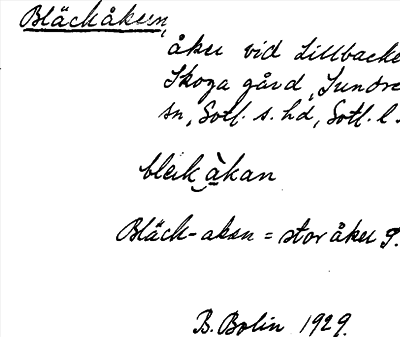 Bläckåkern,
åker vid Lillbacke
Skoga gård, Sundre
sn, Gotl. s. hd, Gotl. l.
bleik àkan
Bläck-aken = stor åker 9.
B. Bolin 1929.